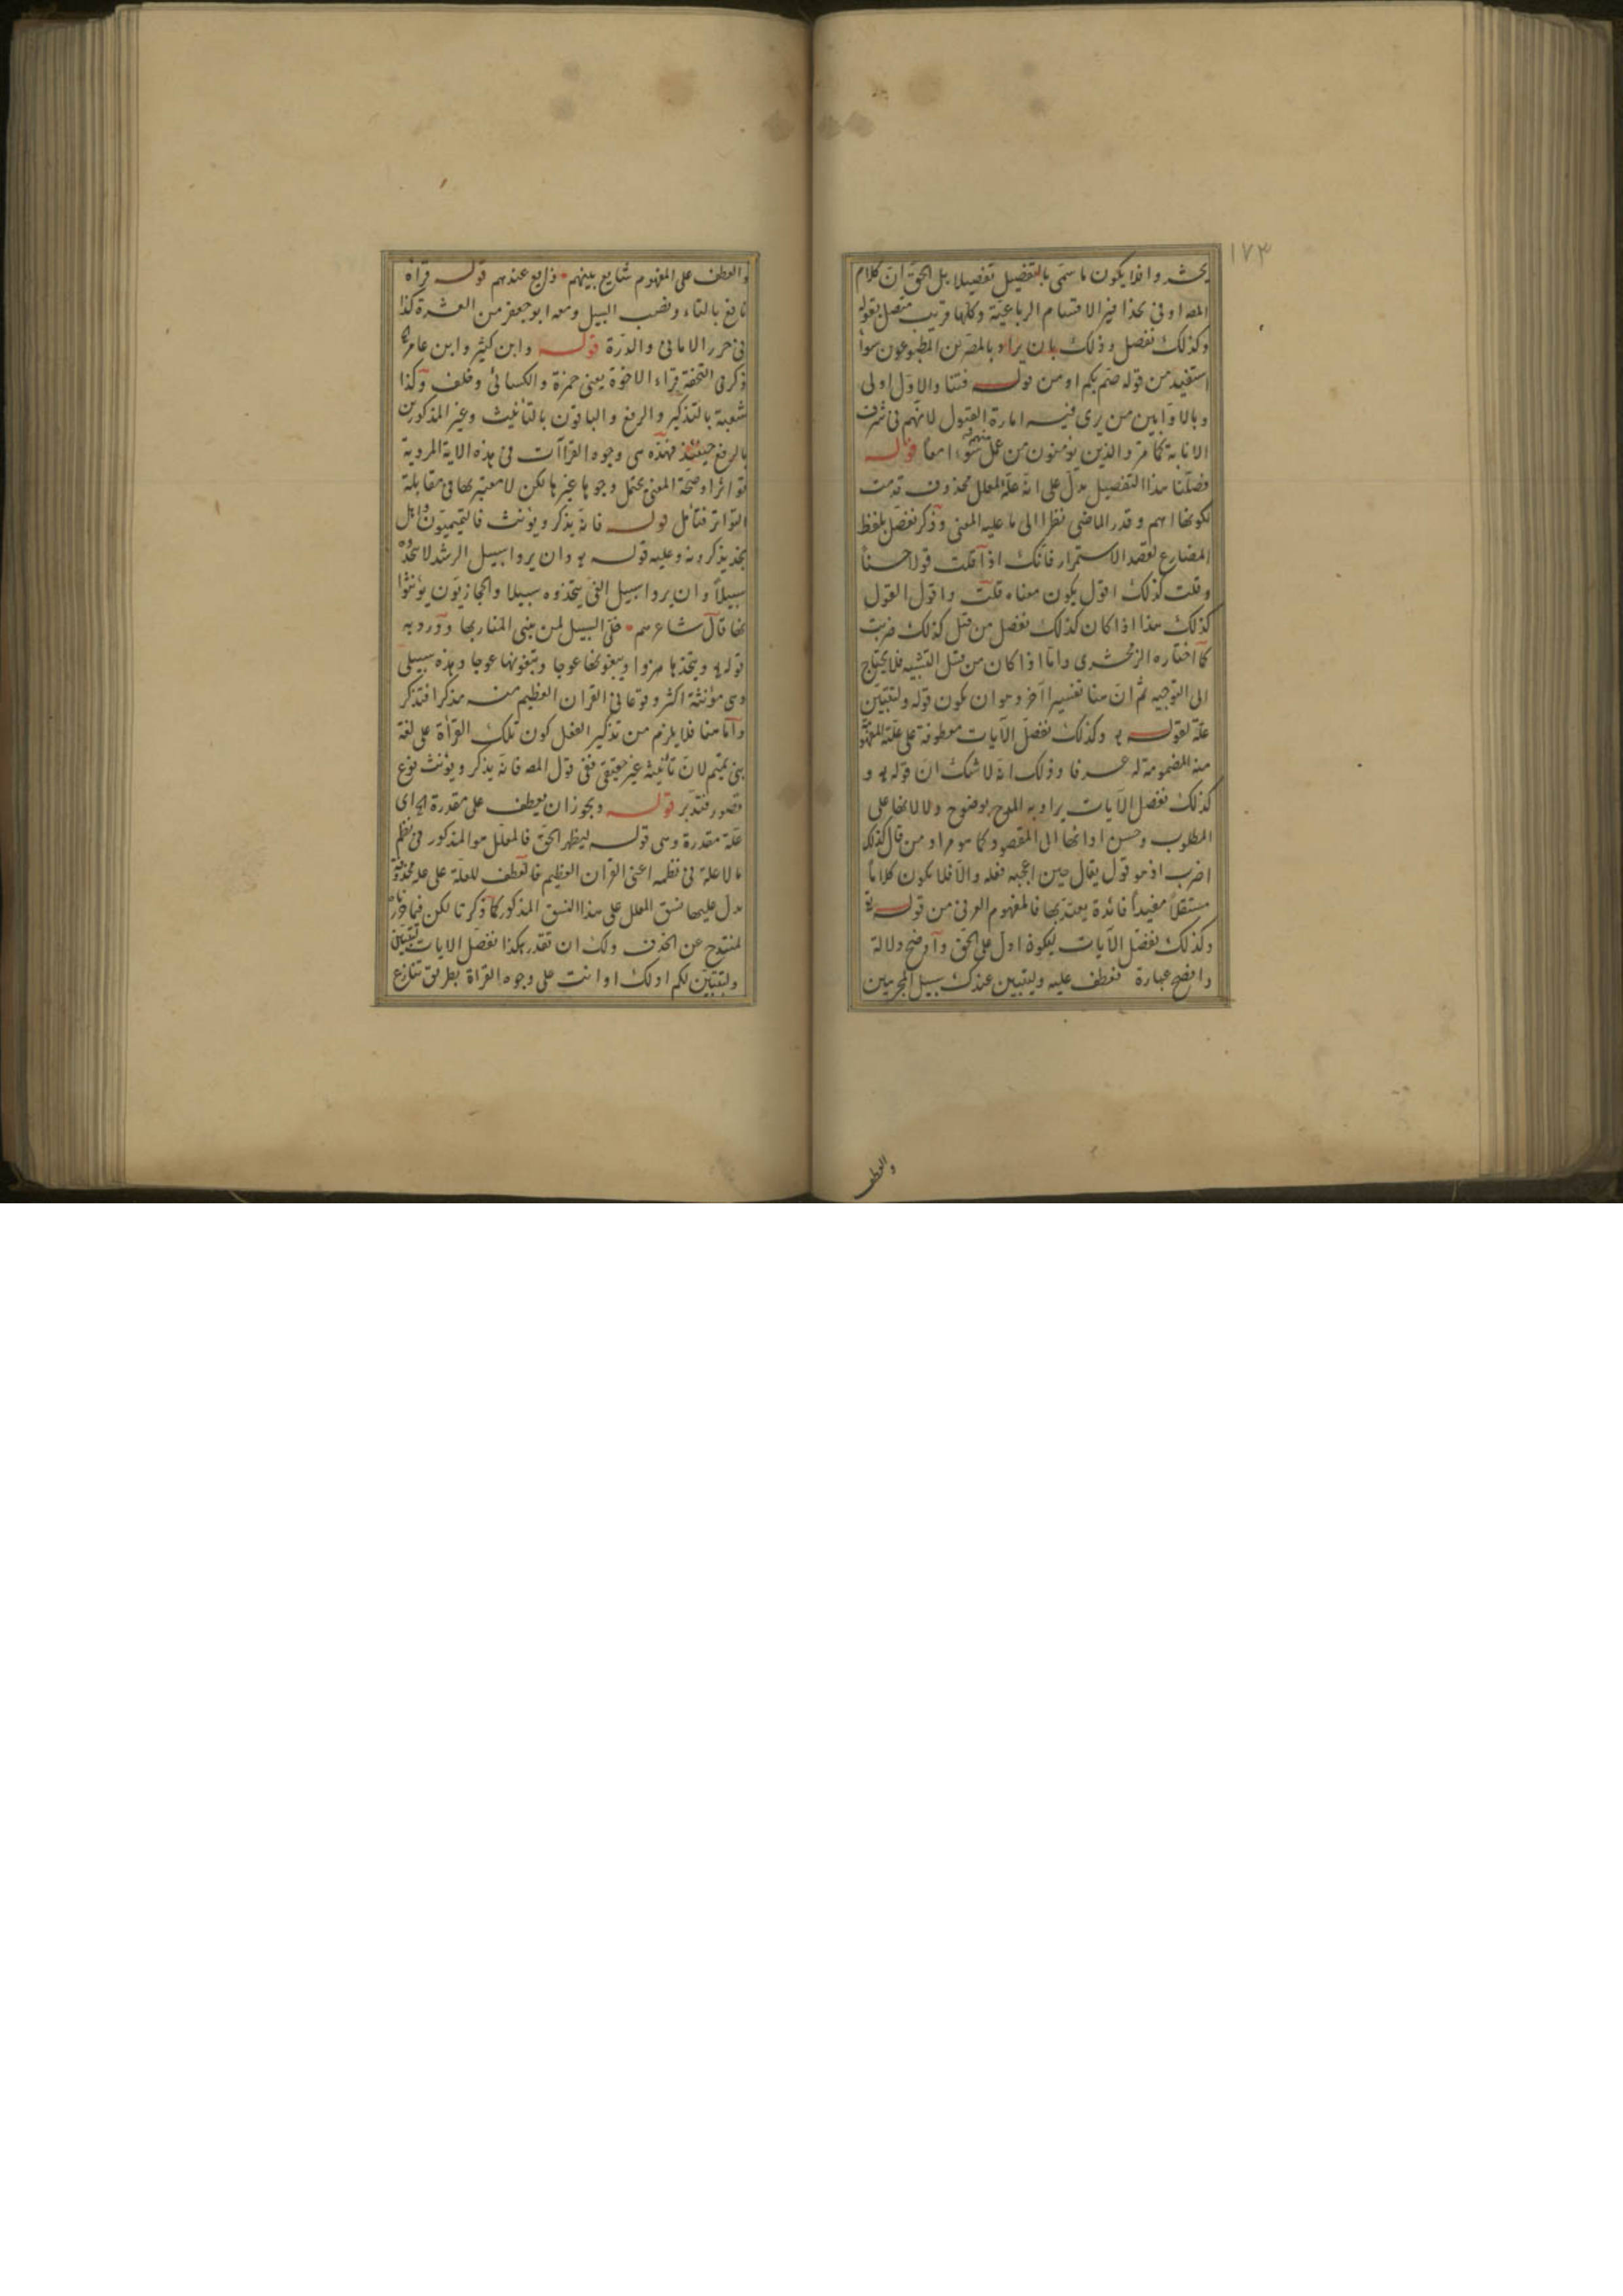 ١٧٣
يحشر واذا يكون ما سمى بالتفصيل تفصيلا بل الحق ان كلام
المصـ اوفى بهذا فيز الاقسام الرباعية وكلها قريب متصل بقوله
وكذلك نفصل وذلك بان يراد بالمصرين المطبوعون سواء
استفيد من قوله صم بكم او من قولـه فتنا والاول اولى
وبالاوابين من يرى فيه امارة القبول لانهم فى شرف
الانابة كما مر والذين يؤمنون من عمل سوءا معا قولـه
فصلنا هذا التفصيل يدل على انه علة لمعلل محذوف قدمت
لكونها اهم وقدر الماضى نظرا الى ما عليه المعنى وذكر نفصل بلفظ
المضارع لقصد الاستمرار فانك اذا قلت قولا حسنا
وقلت كذلك اقول يكون معناه قلت واقول القول
كذلك هذا اذا كان كذلك نفصل من قبل كذلك ضربت
كما اختاره الزمخشرى واما اذا كان من قبل التشبيه فلا يحتاج
الى التوجيه ثم ان هنا تفسيرا آخر وهو ان يكون قوله ولتبين
علة لقولـه وكذلك نفصل الآيات معطوفة على علته المفهومة
منه المضمومة له عرفا وذلك انه لا شك ان قوله تع و
كذلك نفصل الآيات يراد به المدح بوضوح دلالاتها على
المطلوب وحسن ادائها الى المقصود كما هو مراد من قال كذلك
اضرب اذ هو قول يقال حين اعجبه فعله والا فلا يكون كلاما
مستقلا مفيدا فائدة يعتد بها فالمفهوم العرفى من قولـه تع
وكذلك نفصل الآيات ليكون ادل على الحق واوضح دلالة
وافصح عبارة فعطف عليه وليتبين عندك سبيل المجرمين
والعطف
والعطف على المفهوم شايع بينهم وذايع عندهم قولـه قراءة
نافع بالتاء ونصب السبيل ومعه ابو جعفر من العشرة كذا
فى حرز الامانى والدرة قولـه وابن كثير وابن عامر
ذكر فى التحفة قراء الاخوة يعنى حمزة والكسائى وخلف وكذا
شعبة بالتذكير والرفع والباقون بالتأنيث وغير المذكورين
بالرفع حينئذ فهذه هى وجوه القراآت فى هذه الاية المروية
تواترا وصحة المعنى يحتمل وجوها غيرها لكن لا معتبر بها فى مقابلة
التواتر فتأمل قولـه فانه يذكر ويؤنث فالتميميون واهل
نجد يذكرونه وعليه قولـه تع وان يروا سبيل الرشد لا يتخذوه
سبيلا وان يروا سبيل الغى يتخذوه سبيلا والحجازيون يؤنثوا
بها قال شاعرهم خل السبيل لمن يبنى المنار بها وورد به
قوله تع ويتخذها هزوا ويبغونها عوجا وتبغونها عوجا وهذه سبيلى
وهى مؤنثة اكثر وقوعا فى القران العظيم منه مذكرا فتذكر
واما هنا فلا يلزم من تذكير الفعل كون تلك القراءة على لغة
بنى تميم لان تأنيثه غير حقيقى ففى قول المصـ فانه يذكر ويؤنث نوع
قصور فتدبر قولـه ويجوز ان يعطف على مقدرة اى
علة مقدرة وهى قولـه ليظهر الحق فالمعلل هو المذكور فى نظم
ما لا علة فى نظمه اعنى القران العظيم فالعطف للعلة على علة محذوفة
يدل عليها نسق المعلل على هذا النسق المذكور كما ذكرنا لكن فيما
لمندوح عن الحذف ولك ان تقدر هكذا نفصل الايات لتستبين
ولتستبين لكم او لك او انت على وجوه القراءة بطريق تنازع